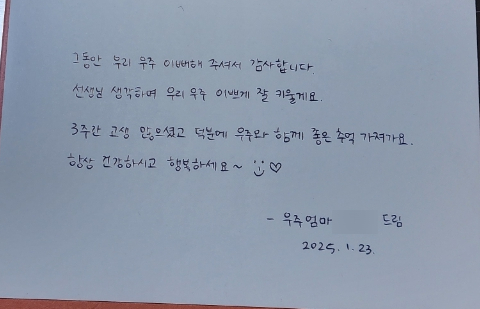 그동안 우리 우주 이뻐해 주셔서 감사합니다.
선생님 생각하며 우리 우주 이쁘게 잘 키울게요.
3주간 고생 많으셨고 덕분에 우주와 함께 좋은 추억 가져가요.
항상 건강하시고 행복하세요~ ☺♡
- 우주엄마 드림
2025. 1. 23.